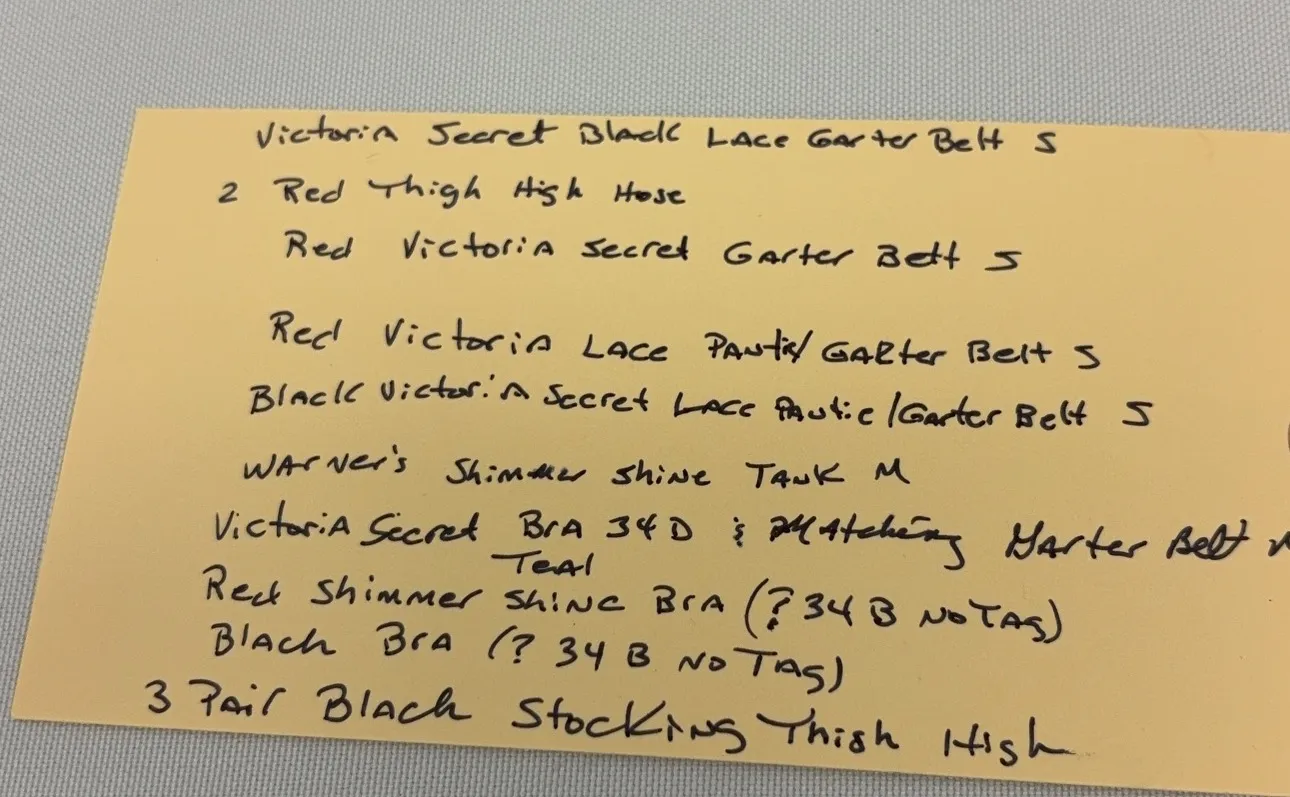 Victoria Secret Black Lace Garter Belt S
2 Red Thigh High Hose
Red Victoria Secret Garter Belt S
Red Victoria Lace Pantie/Garter Belt S
Black Victoria Secret Lace Pantie/Garter Belt S
Warner's Shimmer Shine Tank M
Victoria Secret Bra 34 D & Matching Garter Belt
Teal
Red Shimmer Shine Bra (? 34 B No Tag)
Black Bra (? 34 B No Tag)
3 Pair Black Stocking Thigh High